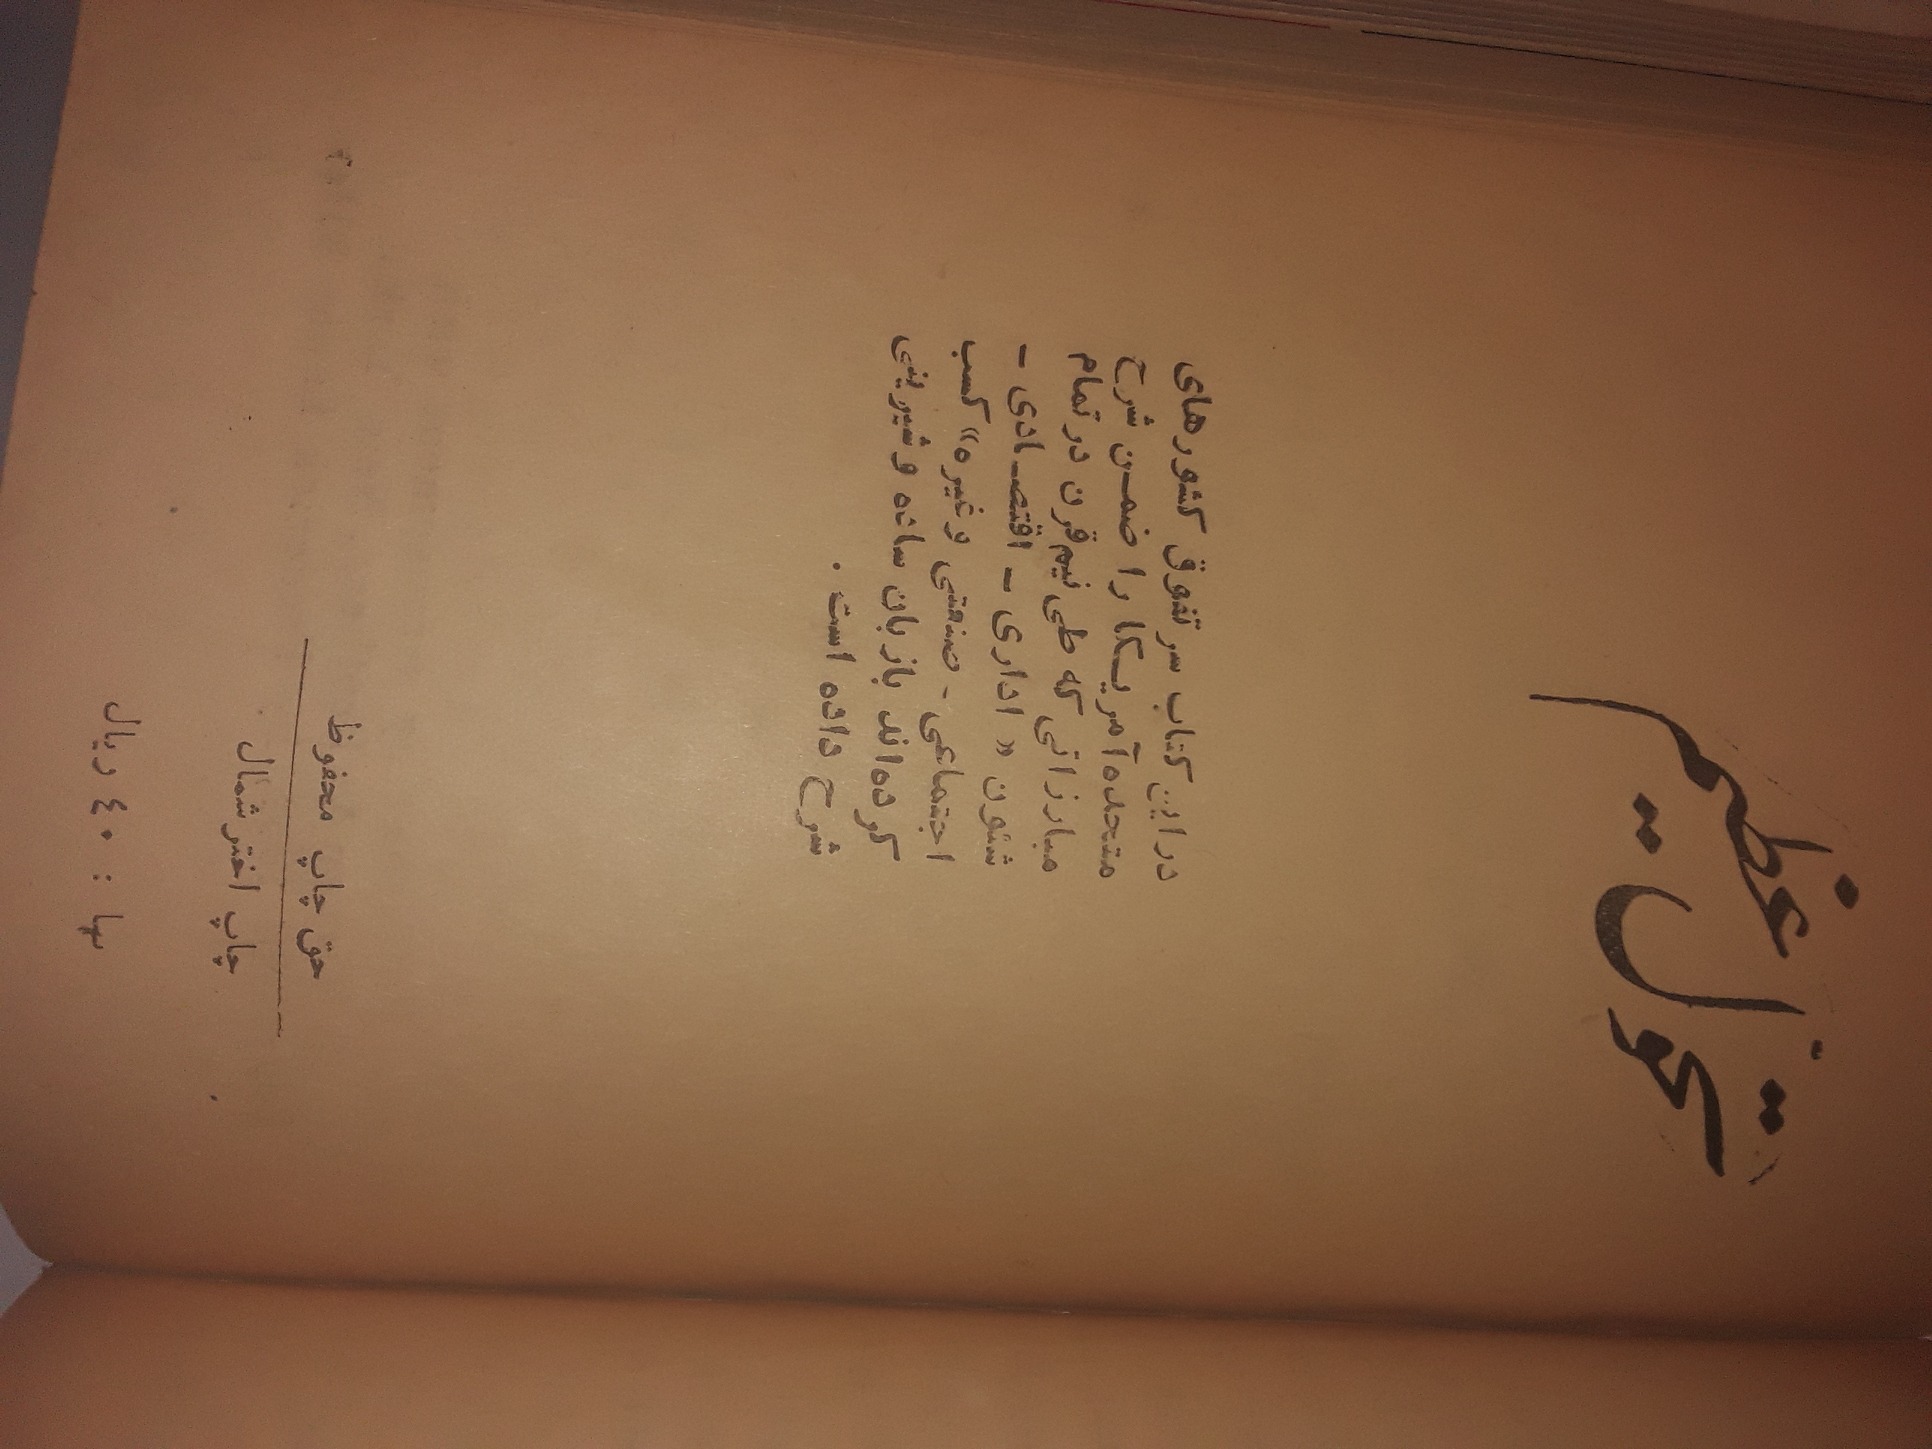 تحول عظیم
در این کتاب سر تفوق کشورهای
متحده آمریکا را ضمن شرح
مبارزاتی که طی نیم قرن در تمام
شئون « اداری - اقتصادی -
اجتماعی - صنعتی و غیره» کسب
کرده اند بازبان ساده و شیرینی
شرح داده است .
حق چاپ محفوظ
چاپ اختر شمال
بها : ٤٠ ریال